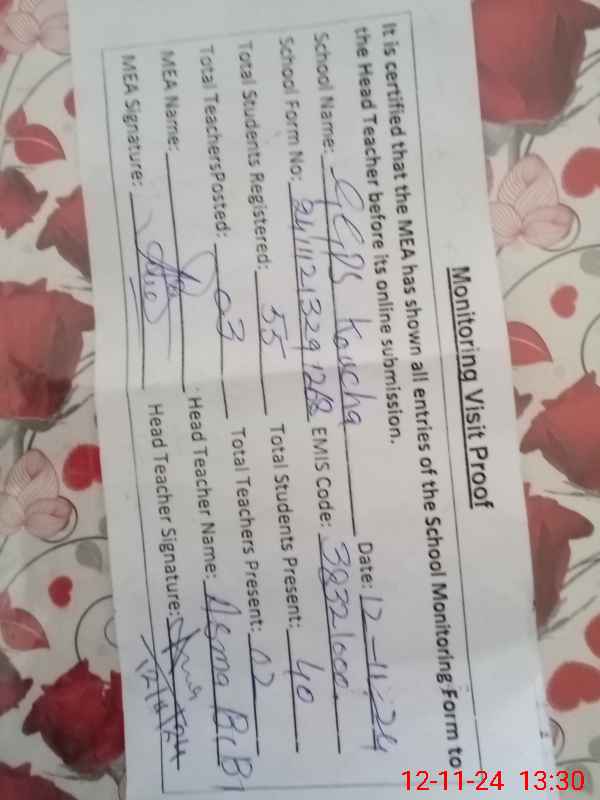 Monitoring Visit Proof
It is certified that the MEA has shown all entries of the School Monitoring Form to
the Head Teacher before its online submission.
School Name: GGPS Kawcha Date: 12-11-24
School Form No: EMIS Code: 38321000
Total Students Registered: 55 Total Students Present: 40
Total TeachersPosted: 03 Total Teachers Present: 02
MEA Name: Head Teacher Name: Asma BiBi
MEA Signature: Head Teacher Signature:
12-11-24 13:30